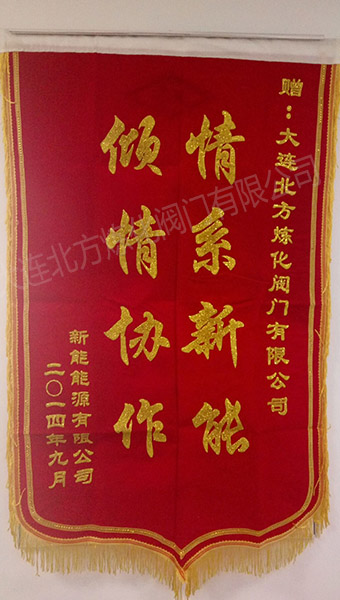 赠：大连北方炼化阀门有限公司
情系新能
倾情协作
新能能源有限公司
二〇一四年九月
大连北方炼化阀门有限公司